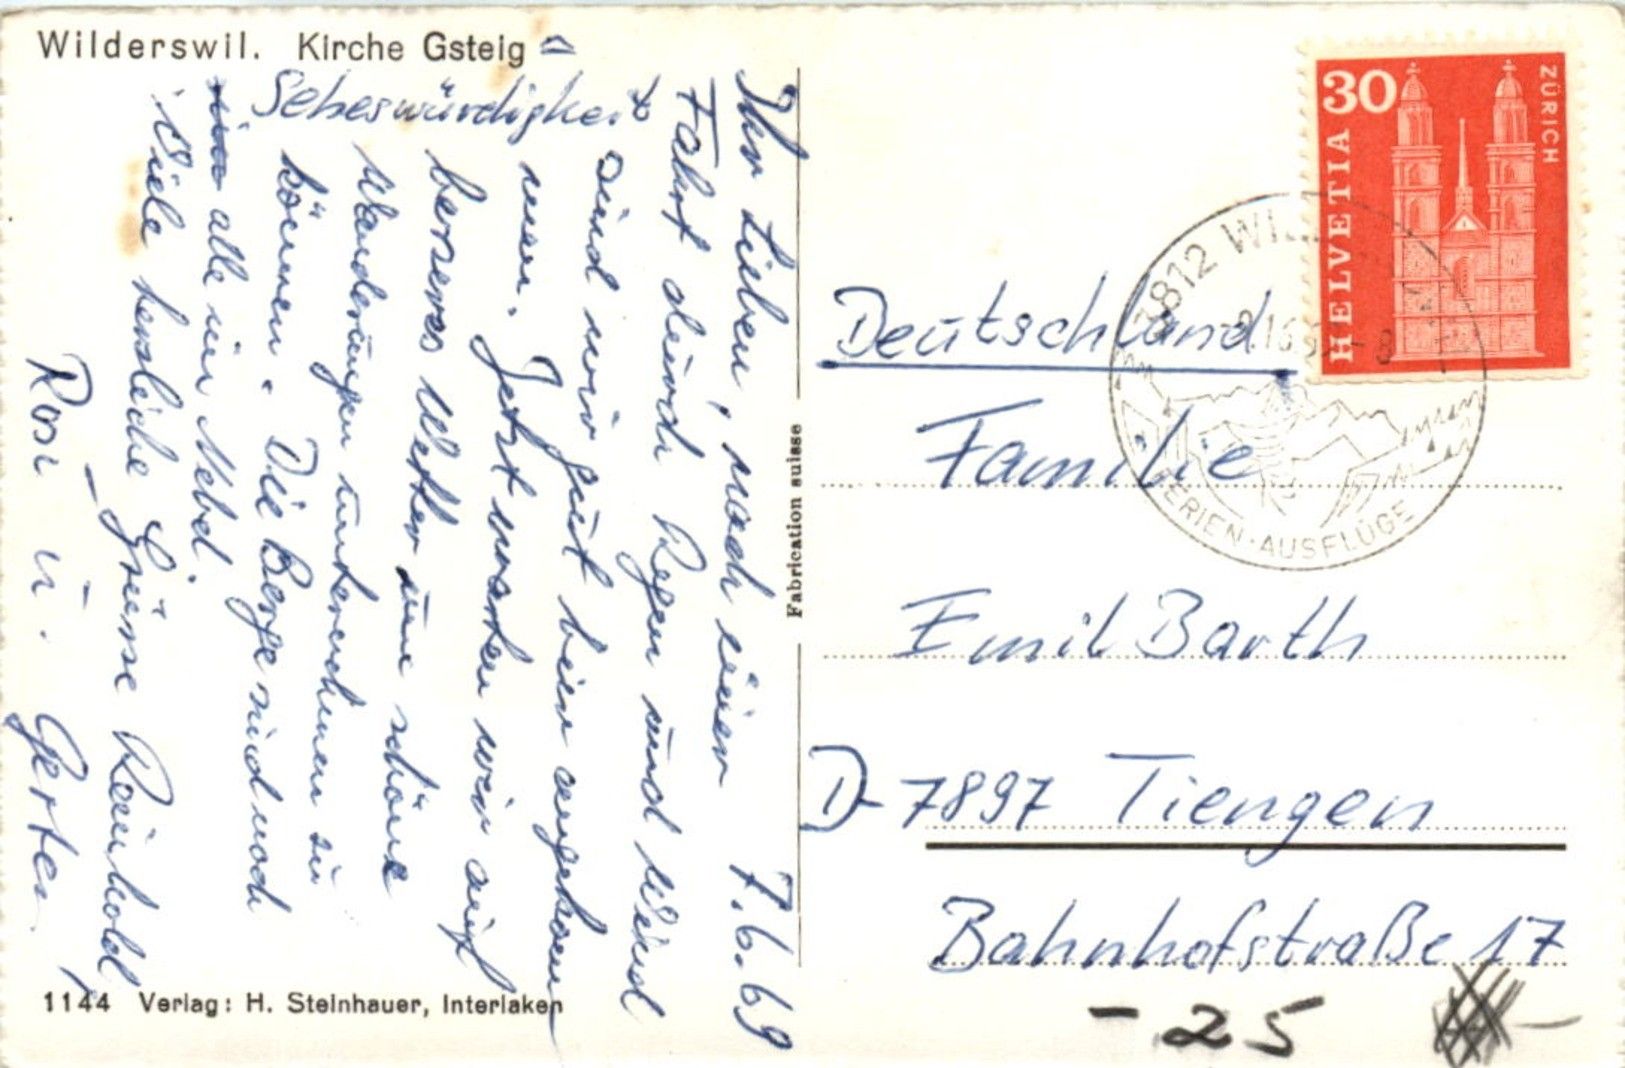 Wilderswil. Kirche Gsteig
Seheswürdigkeit
7.6.69
Ihr Lieben, nach einer
Fahrt durch Regen und Wind
sind wir gut hier angekom
men. Jetzt warten wir auf
besseres Wetter um schöne
Wanderungen unternehmen zu
können. Die Berge sind noch
alle im Nebel.
Viele herzliche Grüsse Reinhold,
Rosi u. Gerten
1144 Verlag: H. Steinhauer, Interlaken
Fabrication suisse
30
HELVETIA
ZÜRICH
3812
FERIEN · AUSFLÜGE
Deutschland
Familie
Emil Barth
D-7897 Tiengen
Bahnhofstraße 17
-25